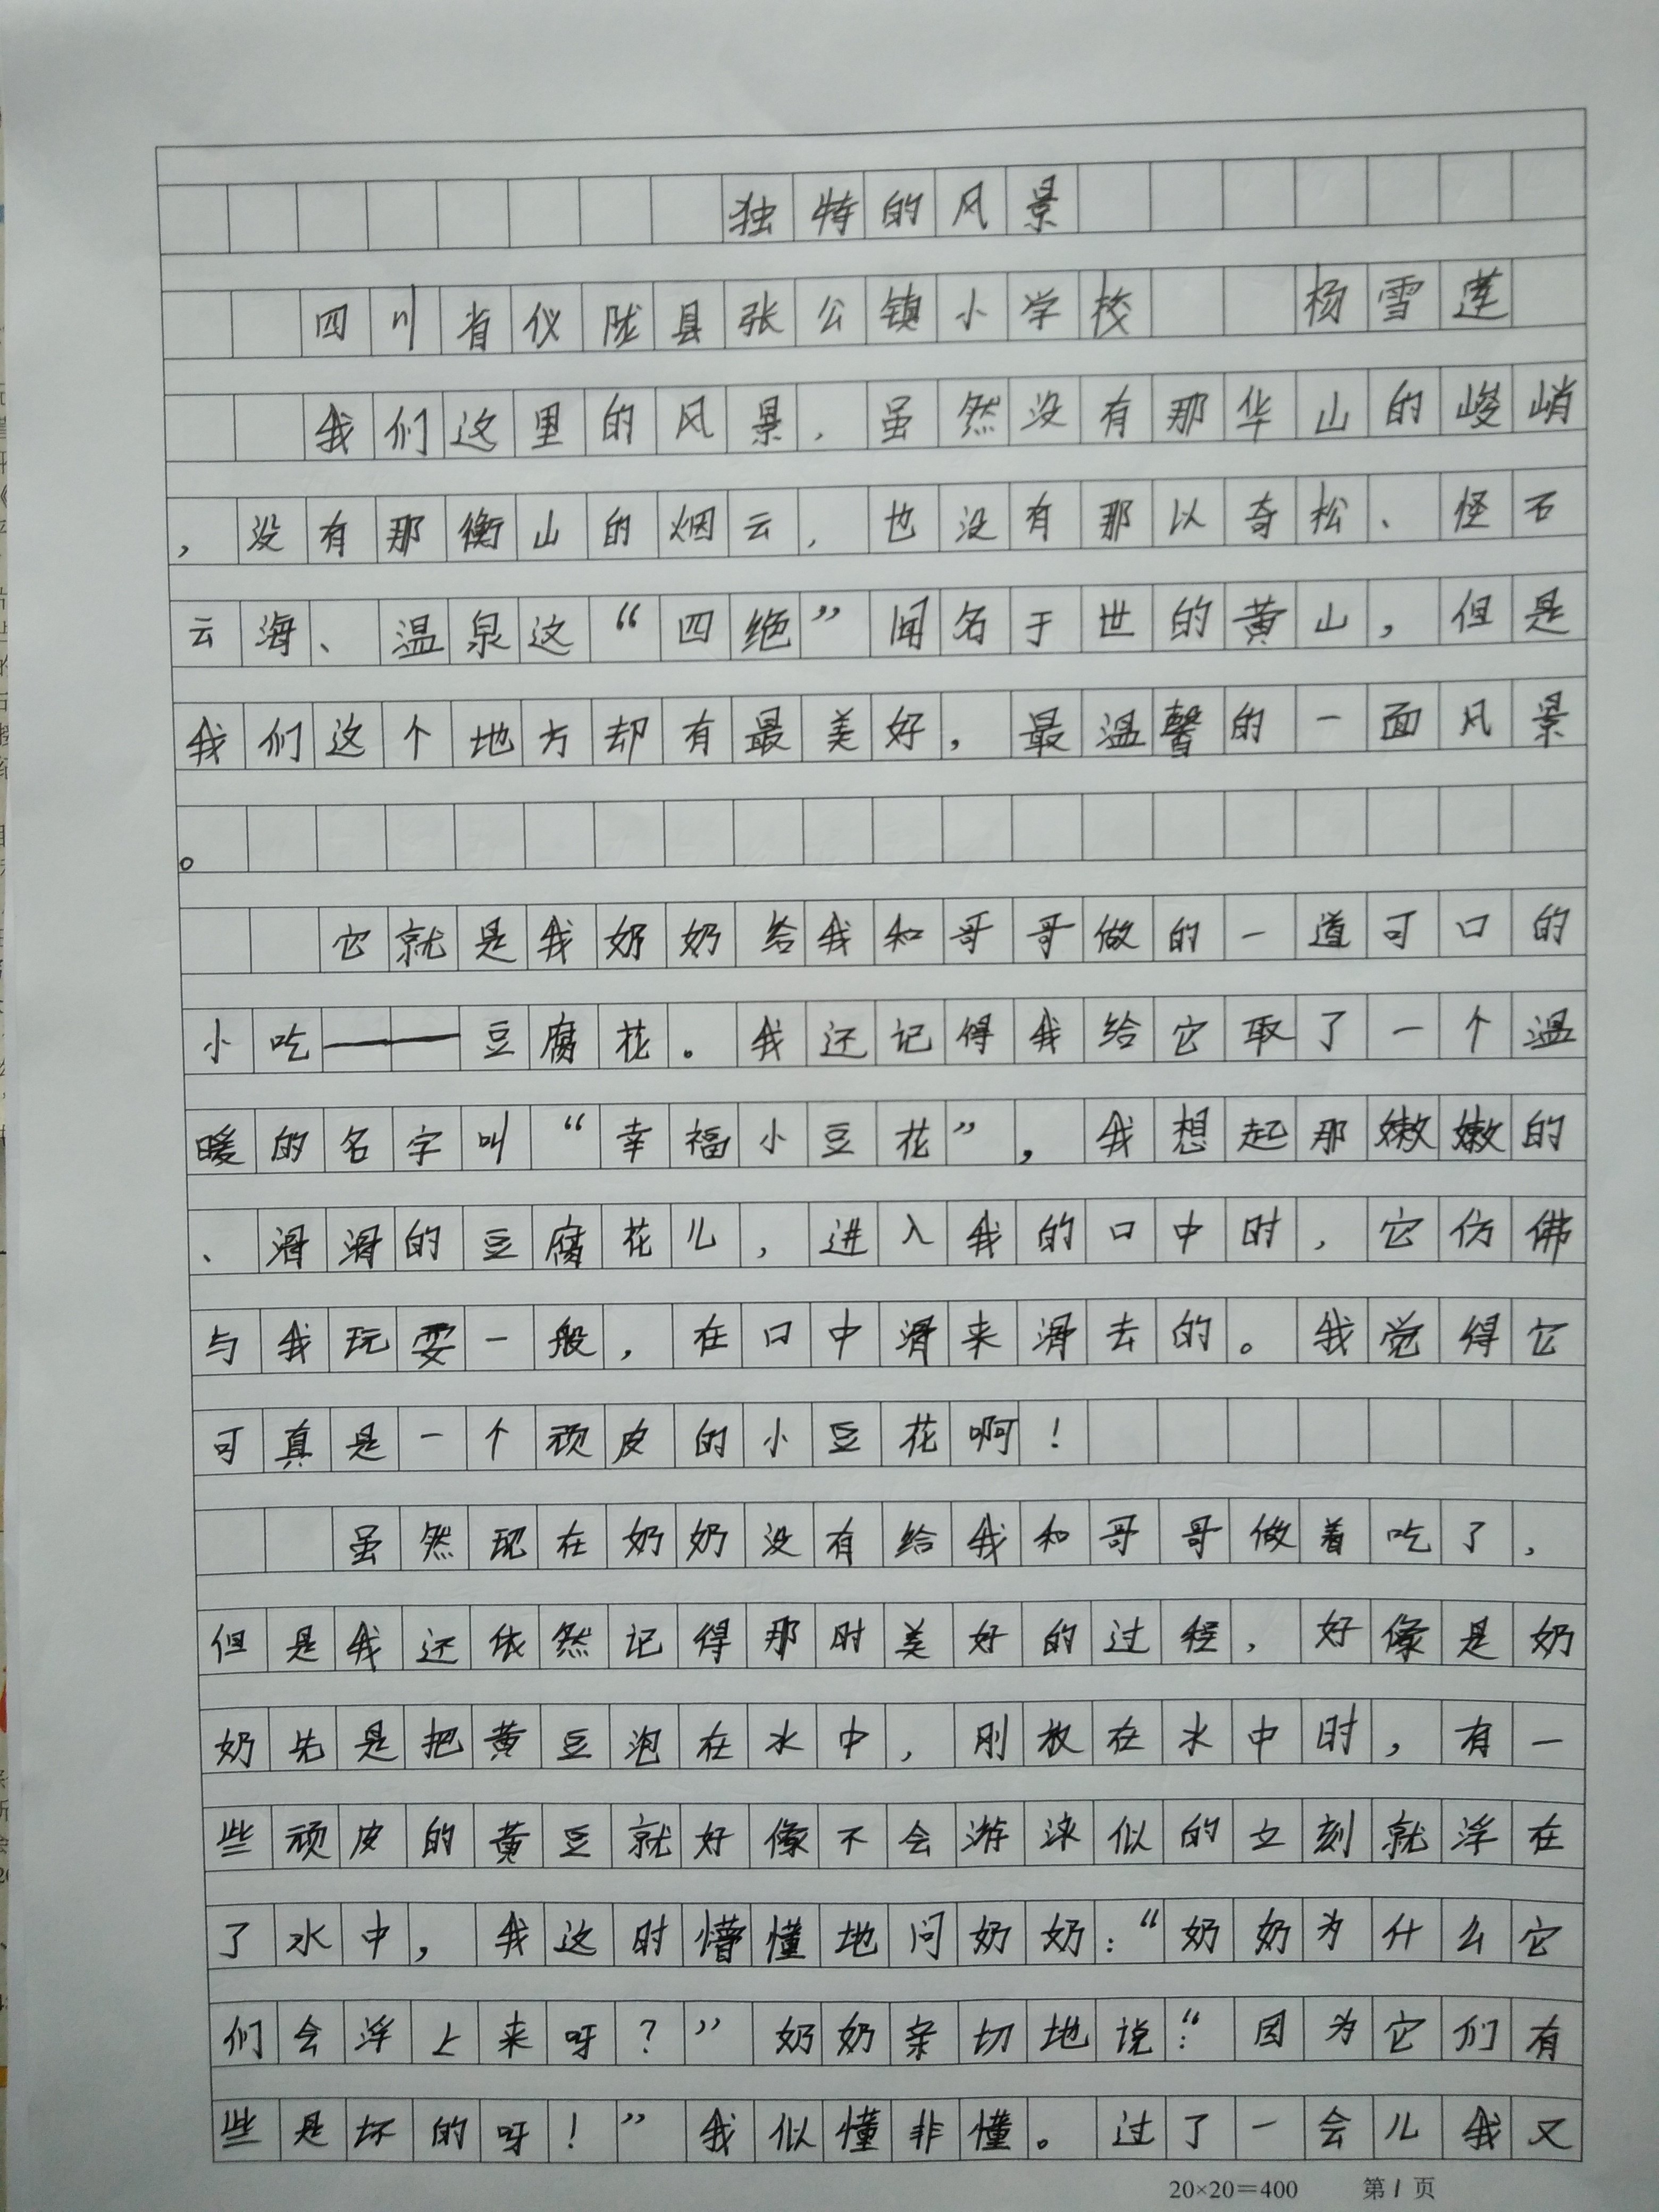 独特的风景
四川省仪陇县张公镇小学校 杨雪莲
我们这里的风景，虽然没有那华山的峻峭
，没有那衡山的烟云，也没有那以奇松、怪石
云海、温泉这“四绝”闻名于世的黄山，但是
我们这个地方却有最美好，最温馨的一面风景
。
它就是我奶奶给我和哥哥做的一道可口的
小吃——豆腐花。我还记得我给它取了一个温
暖的名字叫“幸福小豆花”，我想起那嫩嫩的
、滑滑的豆腐花儿，进入我的口中时，它仿佛
与我玩耍一般，在口中滑来滑去的。我觉得它
可真是一个顽皮的小豆花啊！
虽然现在奶奶没有给我和哥哥做着吃了，
但是我还依然记得那时美好的过程，好像是奶
奶先是把黄豆泡在水中，刚放在水中时，有一
些顽皮的黄豆就好像不会游泳似的立刻就浮在
了水中，我这时懵懂地问奶奶：“奶奶为什么它
们会浮上来呀？”奶奶亲切地说：“因为它们有
些是坏的呀！”我似懂非懂。过了一会儿我又
20×20＝400 第1页